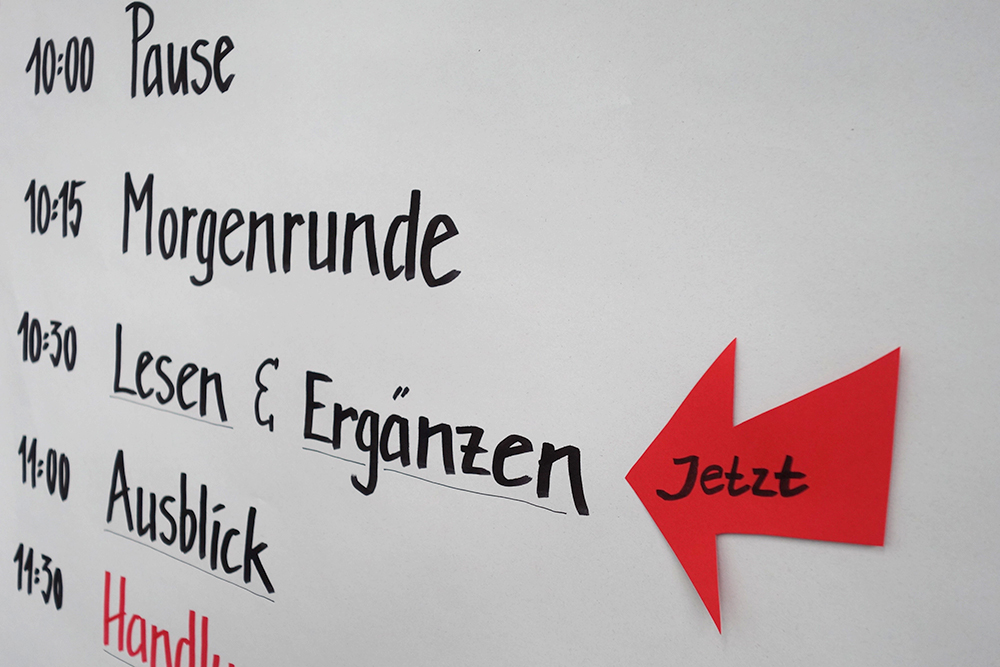 10:00 Pause
10:15 Morgenrunde
10:30 Lesen & Ergänzen
Jetzt
11:00 Ausblick
11:30